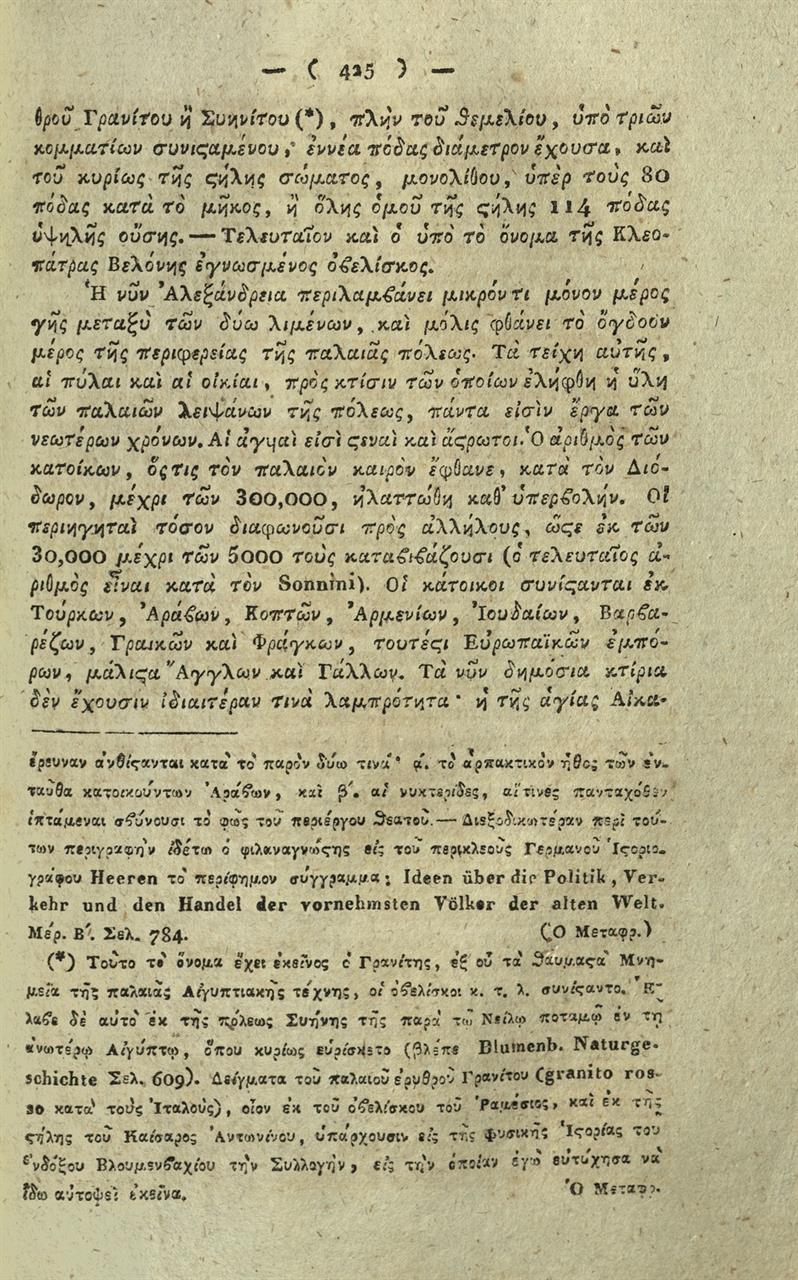 — ( 425 ) —
θροῦ Γρανίτου ἢ Συηνίτου (*), πλὴν τοῦ θεμελίου, ὑπὸ τριῶν
κομματίων συνιϛαμένου, ἐννέα πόδας διάμετρον ἔχουσα, καὶ
τοῦ κυρίως τῆς ϛήλης σώματος, μονολίθου, ὑπὲρ τοὺς 80
πόδας κατὰ τὸ μῆκος, ἢ ὅλης ὁμοῦ τῆς ϛήλης 114 πόδας
ὑψηλῆς οὔσης. — Τελευταῖον καὶ ὁ ὑπὸ τὸ ὄνομα τῆς Κλεο-
πάτρας Βελόνης ἐγνωσμένος ὀβελίσκος.
Ἡ νῦν Ἀλεξάνδρεια περιλαμβάνει μικρόν τι μόνον μέρος
γῆς μεταξὺ τῶν δύω λιμένων, καὶ μόλις φθάνει τὸ ὄγδοον
μέρος τῆς περιφερείας τῆς παλαιᾶς πόλεως. Τὰ τείχη αὐτῆς,
αἱ πύλαι καὶ αἱ οἰκίαι, πρὸς κτίσιν τῶν ὁποίων ἐλήφθη ἡ ὕλη
τῶν παλαιῶν λειψάνων τῆς πόλεως, πάντα εἰσὶν ἔργα τῶν
νεωτέρων χρόνων. Αἱ ἀγυιαὶ εἰσὶ ϛεναὶ καὶ ἄϛρωτοι. Ὁ ἀριθμὸς τῶν
κατοίκων, ὅϛτις τὸν παλαιὸν καιρὸν ἔφθανε, κατὰ τὸν Διό-
δωρον, μέχρι τῶν 300,000, ἠλαττώθη καθ' ὑπερβολήν. Οἱ
περιηγηταὶ τόσον διαφωνοῦσι πρὸς ἀλλήλους, ὥϛε ἐκ τῶν
30,000 μέχρι τῶν 5000 τοὺς καταβιβάζουσι (ὁ τελευταῖος ἀ-
ριθμὸς εἶναι κατὰ τὸν Sonnini). Οἱ κάτοικοι συνίϛανται ἐκ
Τούρκων, Ἀράβων, Κοπτῶν, Ἀρμενίων, Ἰουδαίων, Βαρβα-
ρέζων, Γραικῶν καὶ Φράγκων, τουτέϛι Εὐρωπαϊκῶν ἐμπό-
ρων, μάλιϛα Ἄγγλων καὶ Γάλλων. Τὰ νῦν δημόσια κτίρια
δὲν ἔχουσιν ἰδιαιτέραν τινὰ λαμπρότητα· ἡ τῆς ἁγίας Αἰκα-
ἔρευναν ἀνθίϛανται κατὰ τὸ παρὸν δύω τινά· ά. τὸ ἁρπακτικὸν ἦθος τῶν ἐν-
ταῦθα κατοικούντων Ἀράβων, καὶ β'. αἱ νυκτερίδες, αἵτινες πανταχόθεν
ἱπτάμεναι σβύνουσι τὸ φῶς τοῦ περιέργου θεατοῦ. — Διεξοδικωτέραν περὶ τού-
των περιγραφὴν ἰδέτω ὁ φιλαναγνώϛης εἰς τοῦ περικλεοῦς Γερμανοῦ Ἱϛοριο-
γράφου Heeren τὸ περίφημον σύγγραμμα: Ideen über die Politik, Ver-
kehr und den Handel der vornehmsten Völker der alten Welt.
Μέρ. Β'. Σελ. 784. (Ὁ Μεταφρ.)
(*) Τοῦτο τὸ ὄνομα ἔχει ἐκεῖνος ὁ Γρανίτης, ἐξ οὗ τὰ θαυμαϛὰ Μνη-
μεῖα τῆς παλαιᾶς Αἰγυπτιακῆς τέχνης, οἱ ὀβελίσκοι κ. τ. λ. συνίϛαντο. Ἔ-
λαβε δὲ αὐτὸ ἐκ τῆς πόλεως Συήνης τῆς παρὰ τῷ Νείλῳ ποταμῷ ἐν τῇ
ἀνωτέρῳ Αἰγύπτῳ, ὅπου κυρίως εὑρίσκετο (βλέπε Blumenb. Naturge-
schichte Σελ. 609). Δείγματα τοῦ παλαιοῦ ἐρυθροῦ Γρανίτου (granito ros-
so κατὰ τοὺς Ἰταλοὺς), οἷον ἐκ τοῦ ὀβελίσκου τοῦ Ῥαμέσιος, καὶ ἐκ τῆς
ϛήλης τοῦ Καίσαρος Ἀντωνίνου, ὑπάρχουσιν εἰς τῆς φυσικῆς Ἱϛορίας τοῦ
ἐνδόξου Βλουμενβαχίου τὴν Συλλογὴν, εἰς τὴν ὁποίαν ἐγὼ εὐτύχησα νὰ
ἴδω αὐτοψεὶ ἐκεῖνα. Ὁ Μεταφρ.